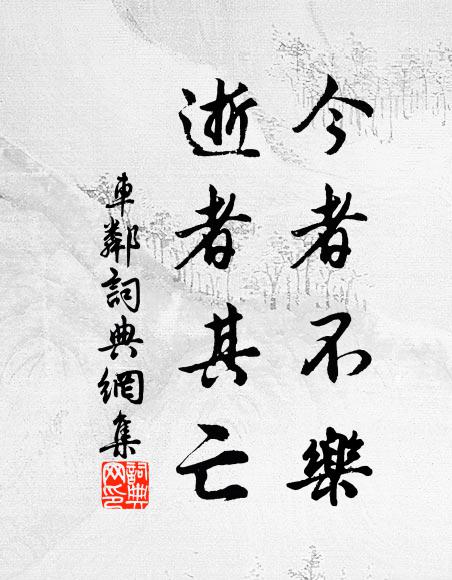 今者不樂
逝者其亡
車鄰詞典網集
詞典網印